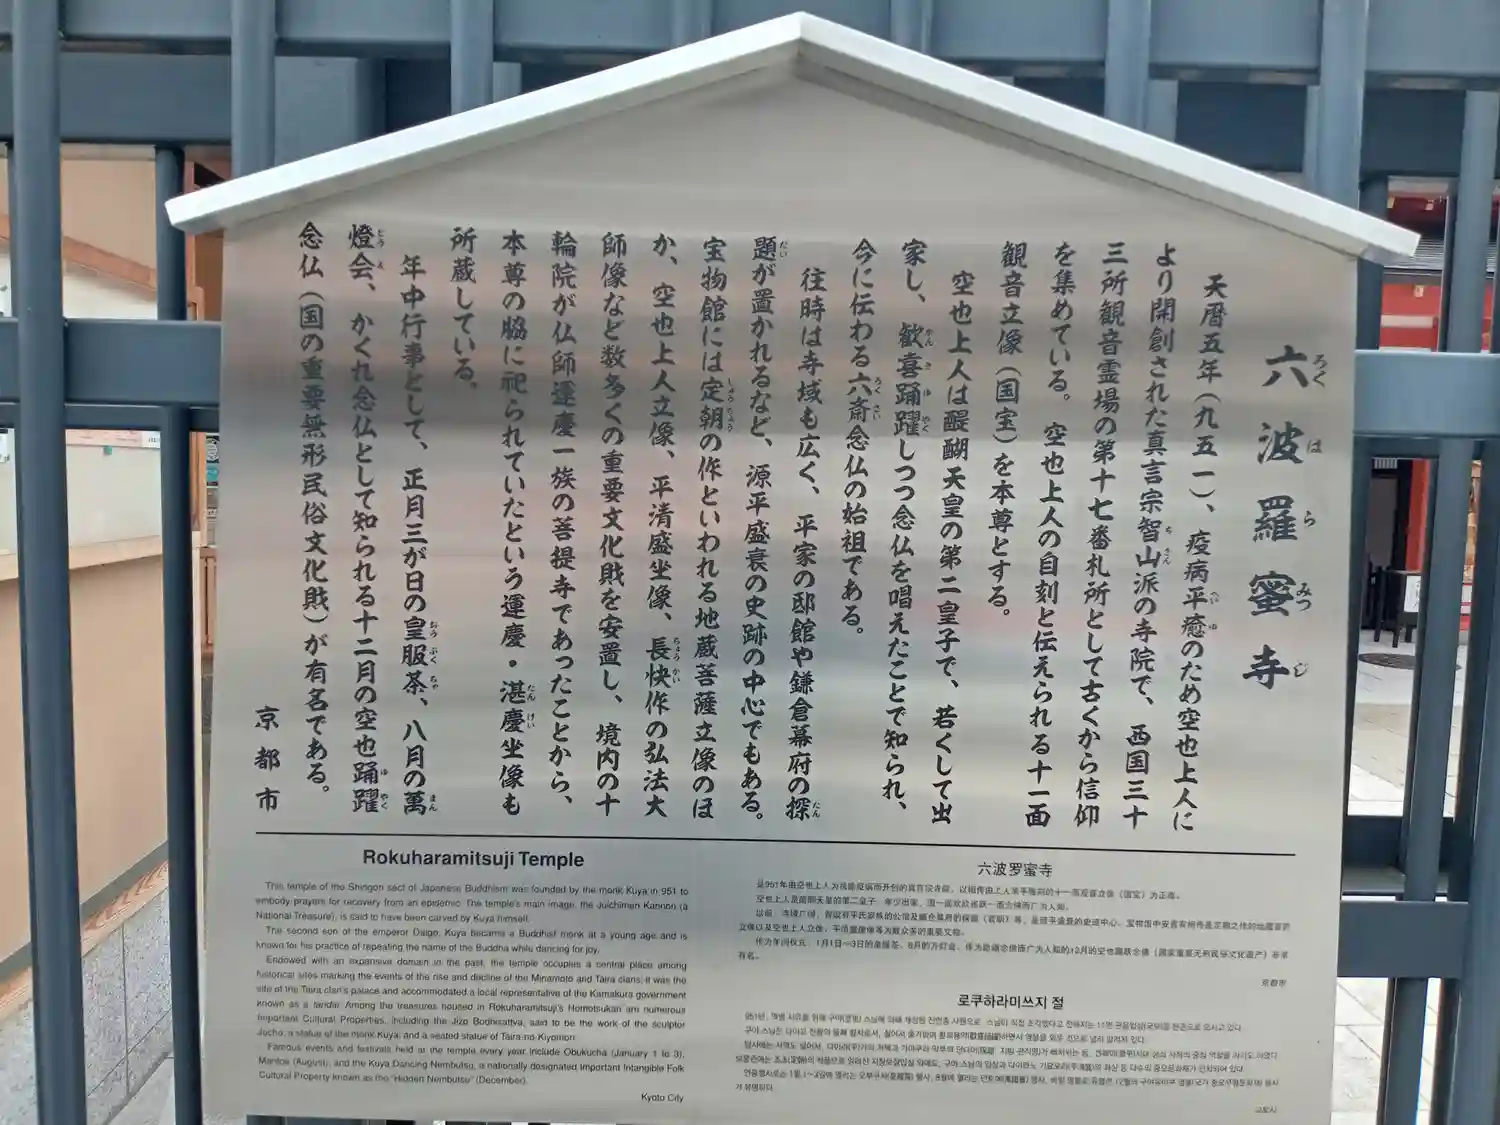 六波羅蜜寺
ろくはらみつじ
天暦五年（九五一）、疫病平癒のため空也上人に
より開創された真言宗智山派の寺院で、西国三十
三所観音霊場の第十七番札所として古くから信仰
を集めている。空也上人の自刻と伝えられる十一面
観音立像（国宝）を本尊とする。
空也上人は醍醐天皇の第二皇子で、若くして出
家し、歓喜踊躍しつつ念仏を唱えたことで知られ、
今に伝わる六斎念仏の始祖である。
往時は寺域も広く、平家の邸館や鎌倉幕府の探
題が置かれるなど、源平盛衰の史跡の中心でもある。
宝物館には定朝の作といわれる地蔵菩薩立像のほ
か、空也上人立像、平清盛坐像、長快作の弘法大
師像など数多くの重要文化財を安置し、境内の十
輪院が仏師運慶一族の菩提寺であったことから、
本尊の脇に祀られていたという運慶・湛慶坐像も
所蔵している。
年中行事として、正月三が日の皇服茶、八月の萬
燈会、かくれ念仏として知られる十二月の空也踊躍
念仏（国の重要無形民俗文化財）が有名である。
京都市
Rokuharamitsuji Temple
This temple of the Shingon sect of Japanese Buddhism was founded by the monk Kuya in 951 to
embody prayers for recovery from an epidemic. The temple's main image, the Juichimen Kannon (a
National Treasure), is said to have been carved by Kuya himself.
The second son of the emperor Daigo, Kuya became a Buddhist monk at a young age and is
known for his practice of repeating the name of the Buddha while dancing for joy.
Endowed with an expansive domain in the past, the temple occupies a central place among
historical sites marking the events of the rise and decline of the Minamoto and Taira clans; it was the
site of the Taira clan's palace and accommodated a local representative of the Kamakura government
known as a tandai. Among the treasures housed in Rokuharamitsuji's Homotsukan are numerous
Important Cultural Properties, including the Jizo Bodhisattva, said to be the work of the sculptor
Jocho, a statue of the monk Kuya, and a seated statue of Taira-no-Kiyomori.
Famous events and festivals held at the temple every year include Obukucha (January 1 to 3),
Mantoe (August), and the Kuya Dancing Nembutsu, a nationally designated Important Intangible Folk
Cultural Property known as the "Hidden Nembutsu" (December).
Kyoto City
六波罗蜜寺
京都市
로쿠하라미쓰지 절
교토시